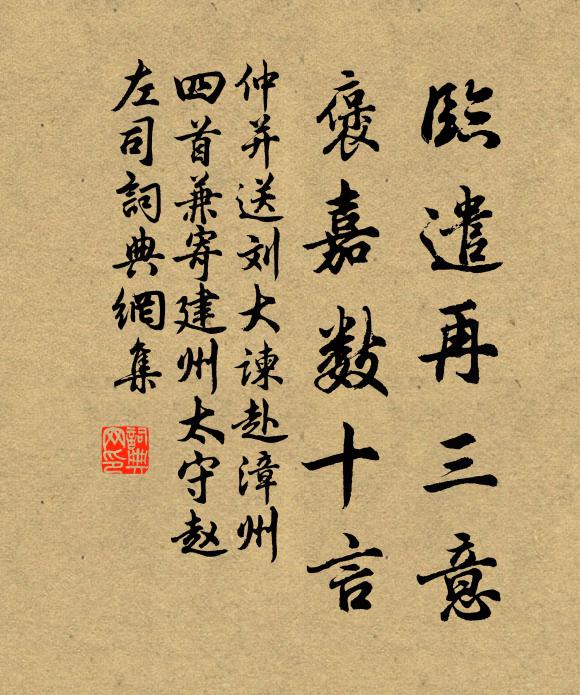 臨遣再三意
褒嘉数十言
仲并送刘大諫赴漳州
四首兼寄建州太守赵
左司詞典網集
詞典
网印